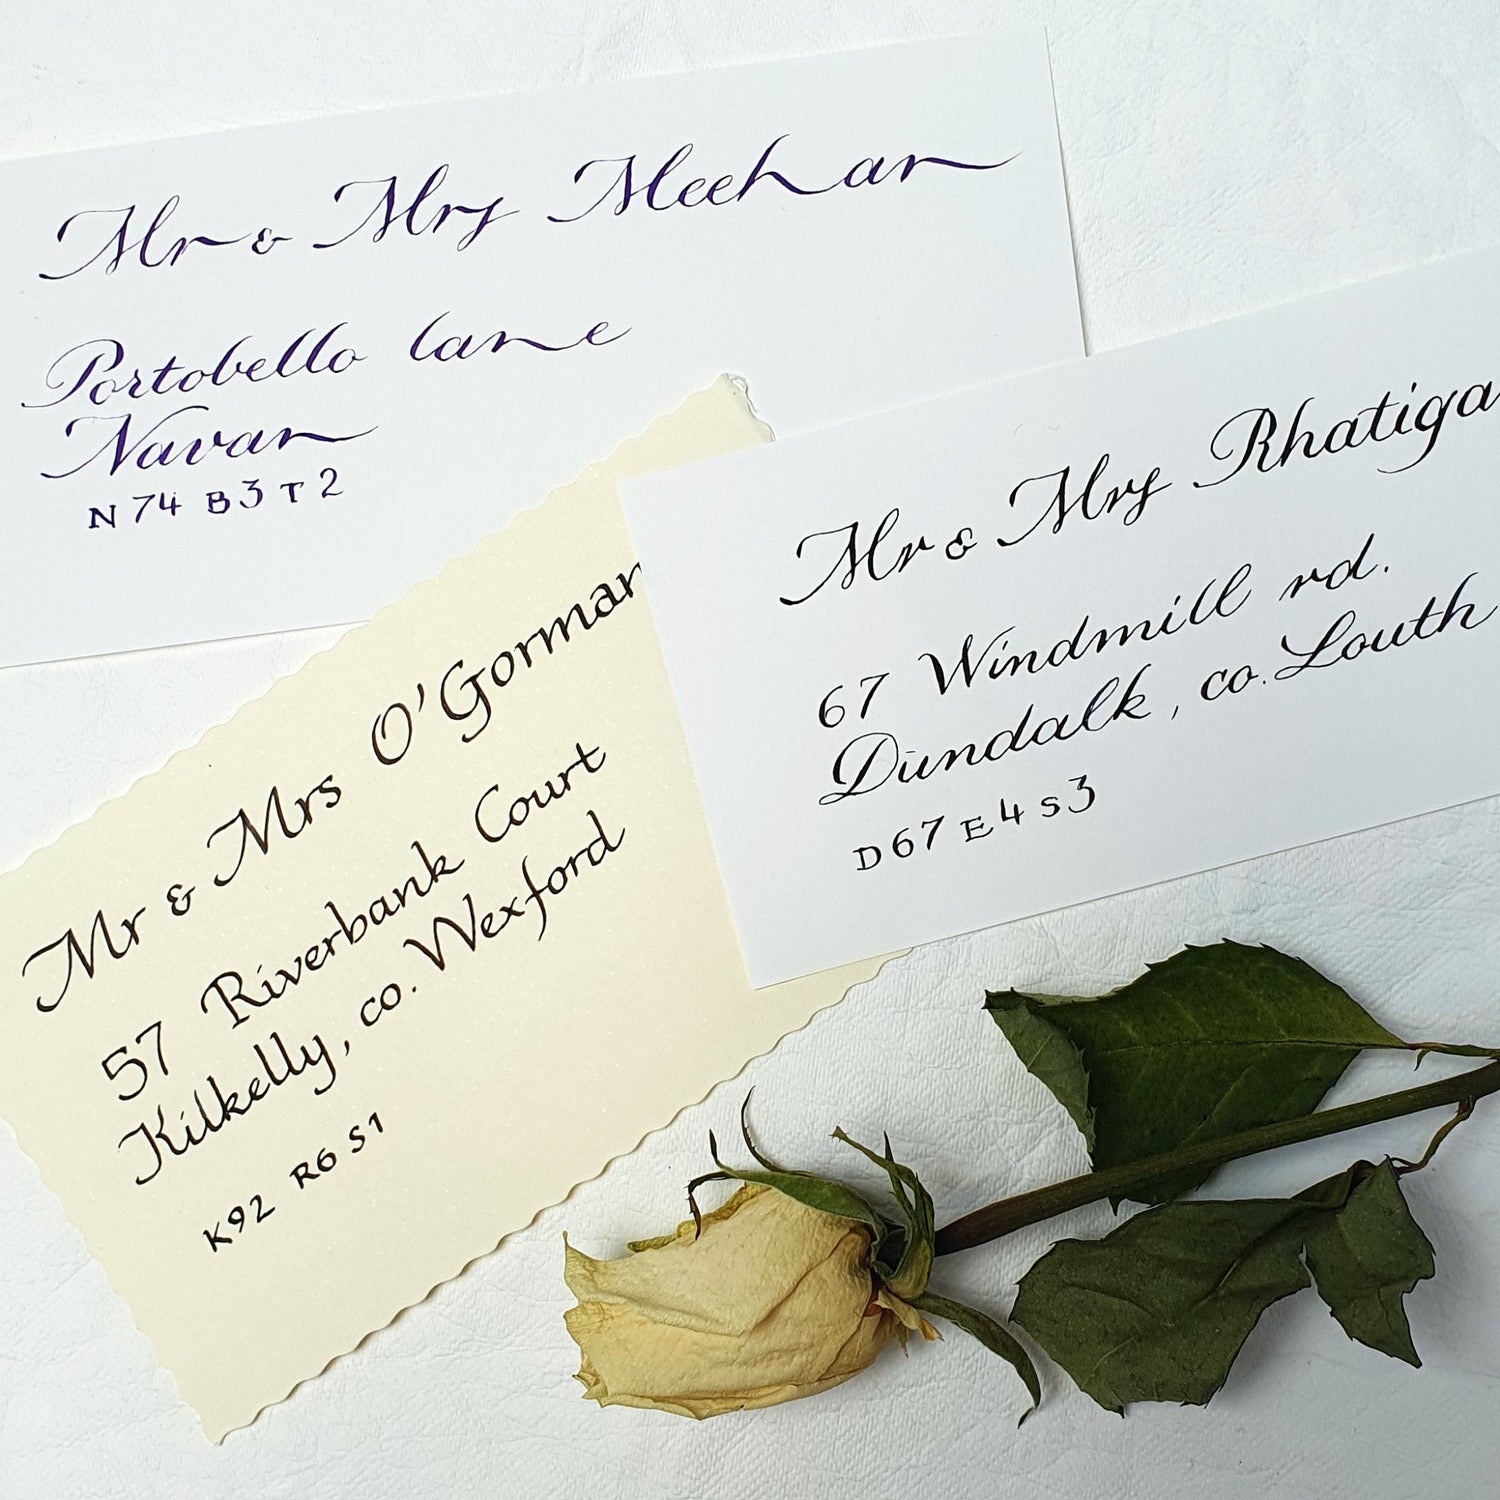 Mr & Mrs Meehan
Portobello lane
Navan
N74 B3T2
Mr & Mrs O'Gorman
57 Riverbank Court
Kilkelly, co. Wexford
K92 R6S1
Mr & Mrs Rhatiga
67 Windmill rd.
Dundalk, co. Louth
D67 E4S3